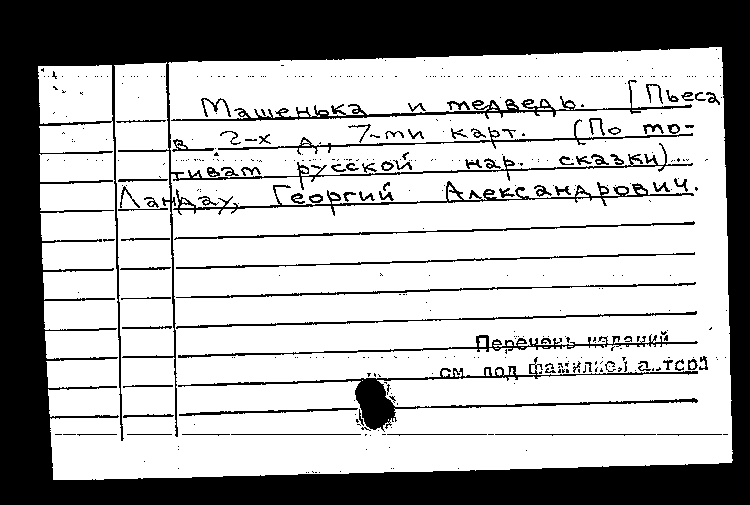 Машенька и медведь. [Пьеса
в 2-х д., 7-ми карт. (По мо-
тивам русской нар. сказки)..
Ландау, Георгий Александрович.
Перечень изданий
см. под фамилией автора